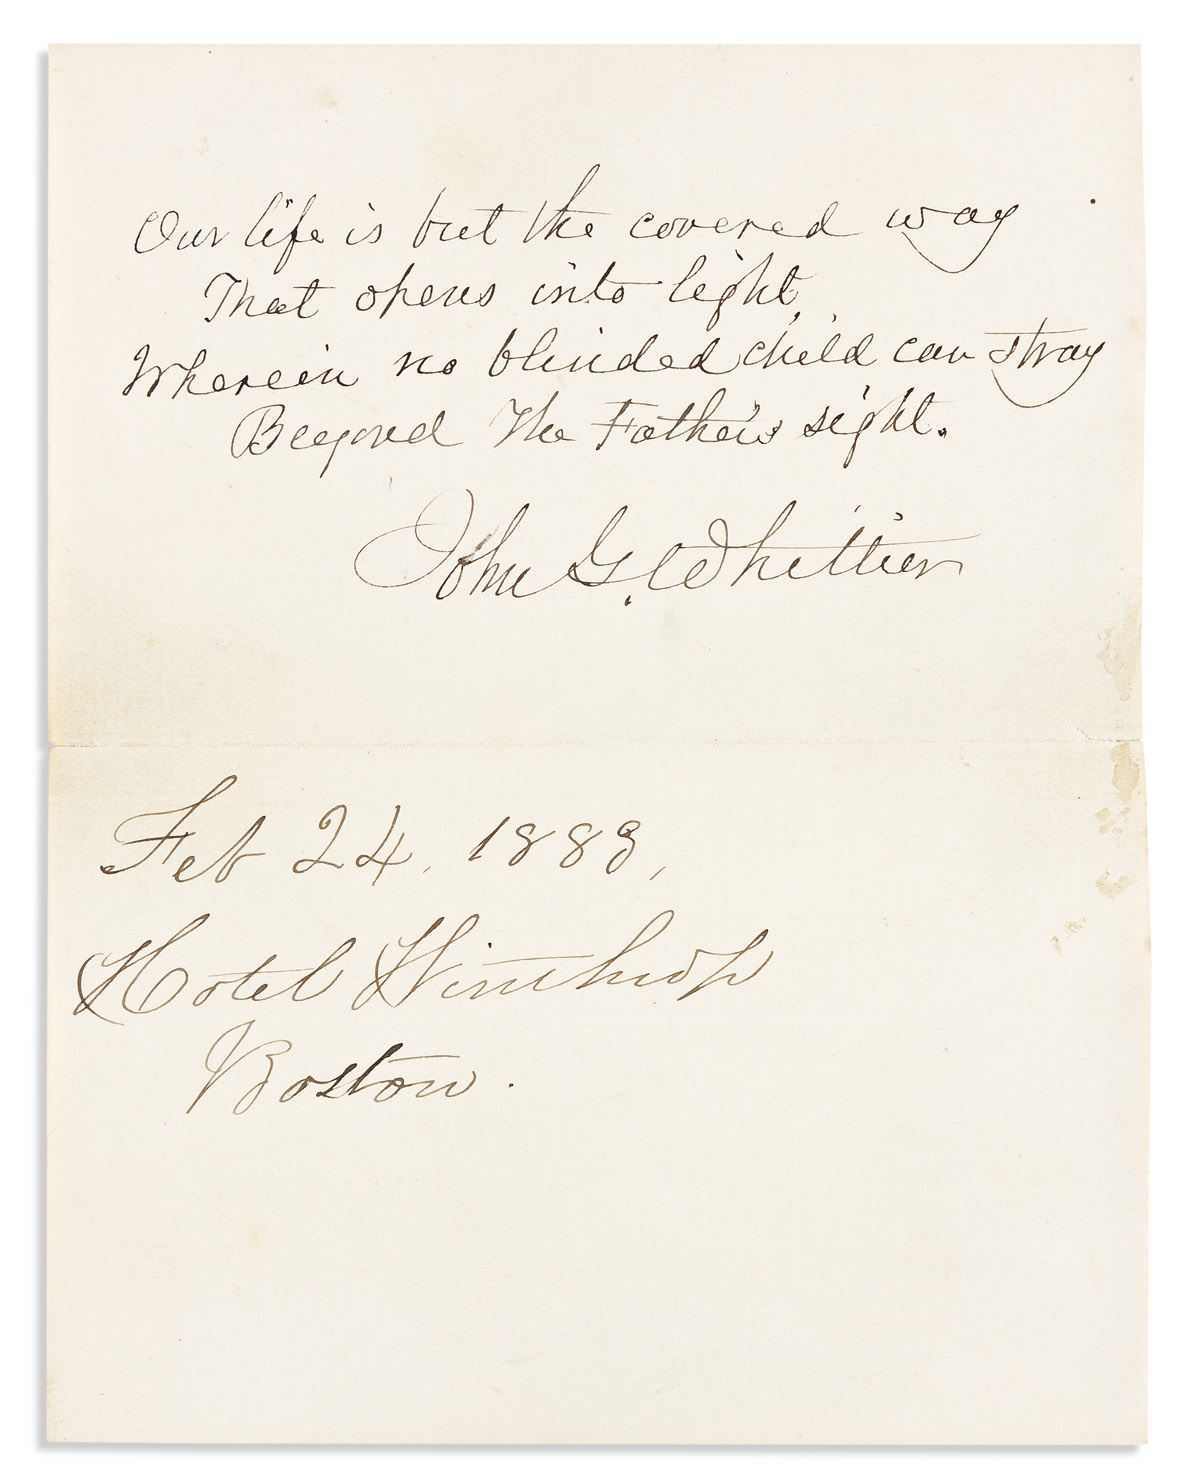 Our life is but the covered way
That opens into light,
Wherein no blinded child can stray
Beyond the Father's sight.
John G. Whittier
Feb 24, 1883,
Hotel Winthrop
Boston.